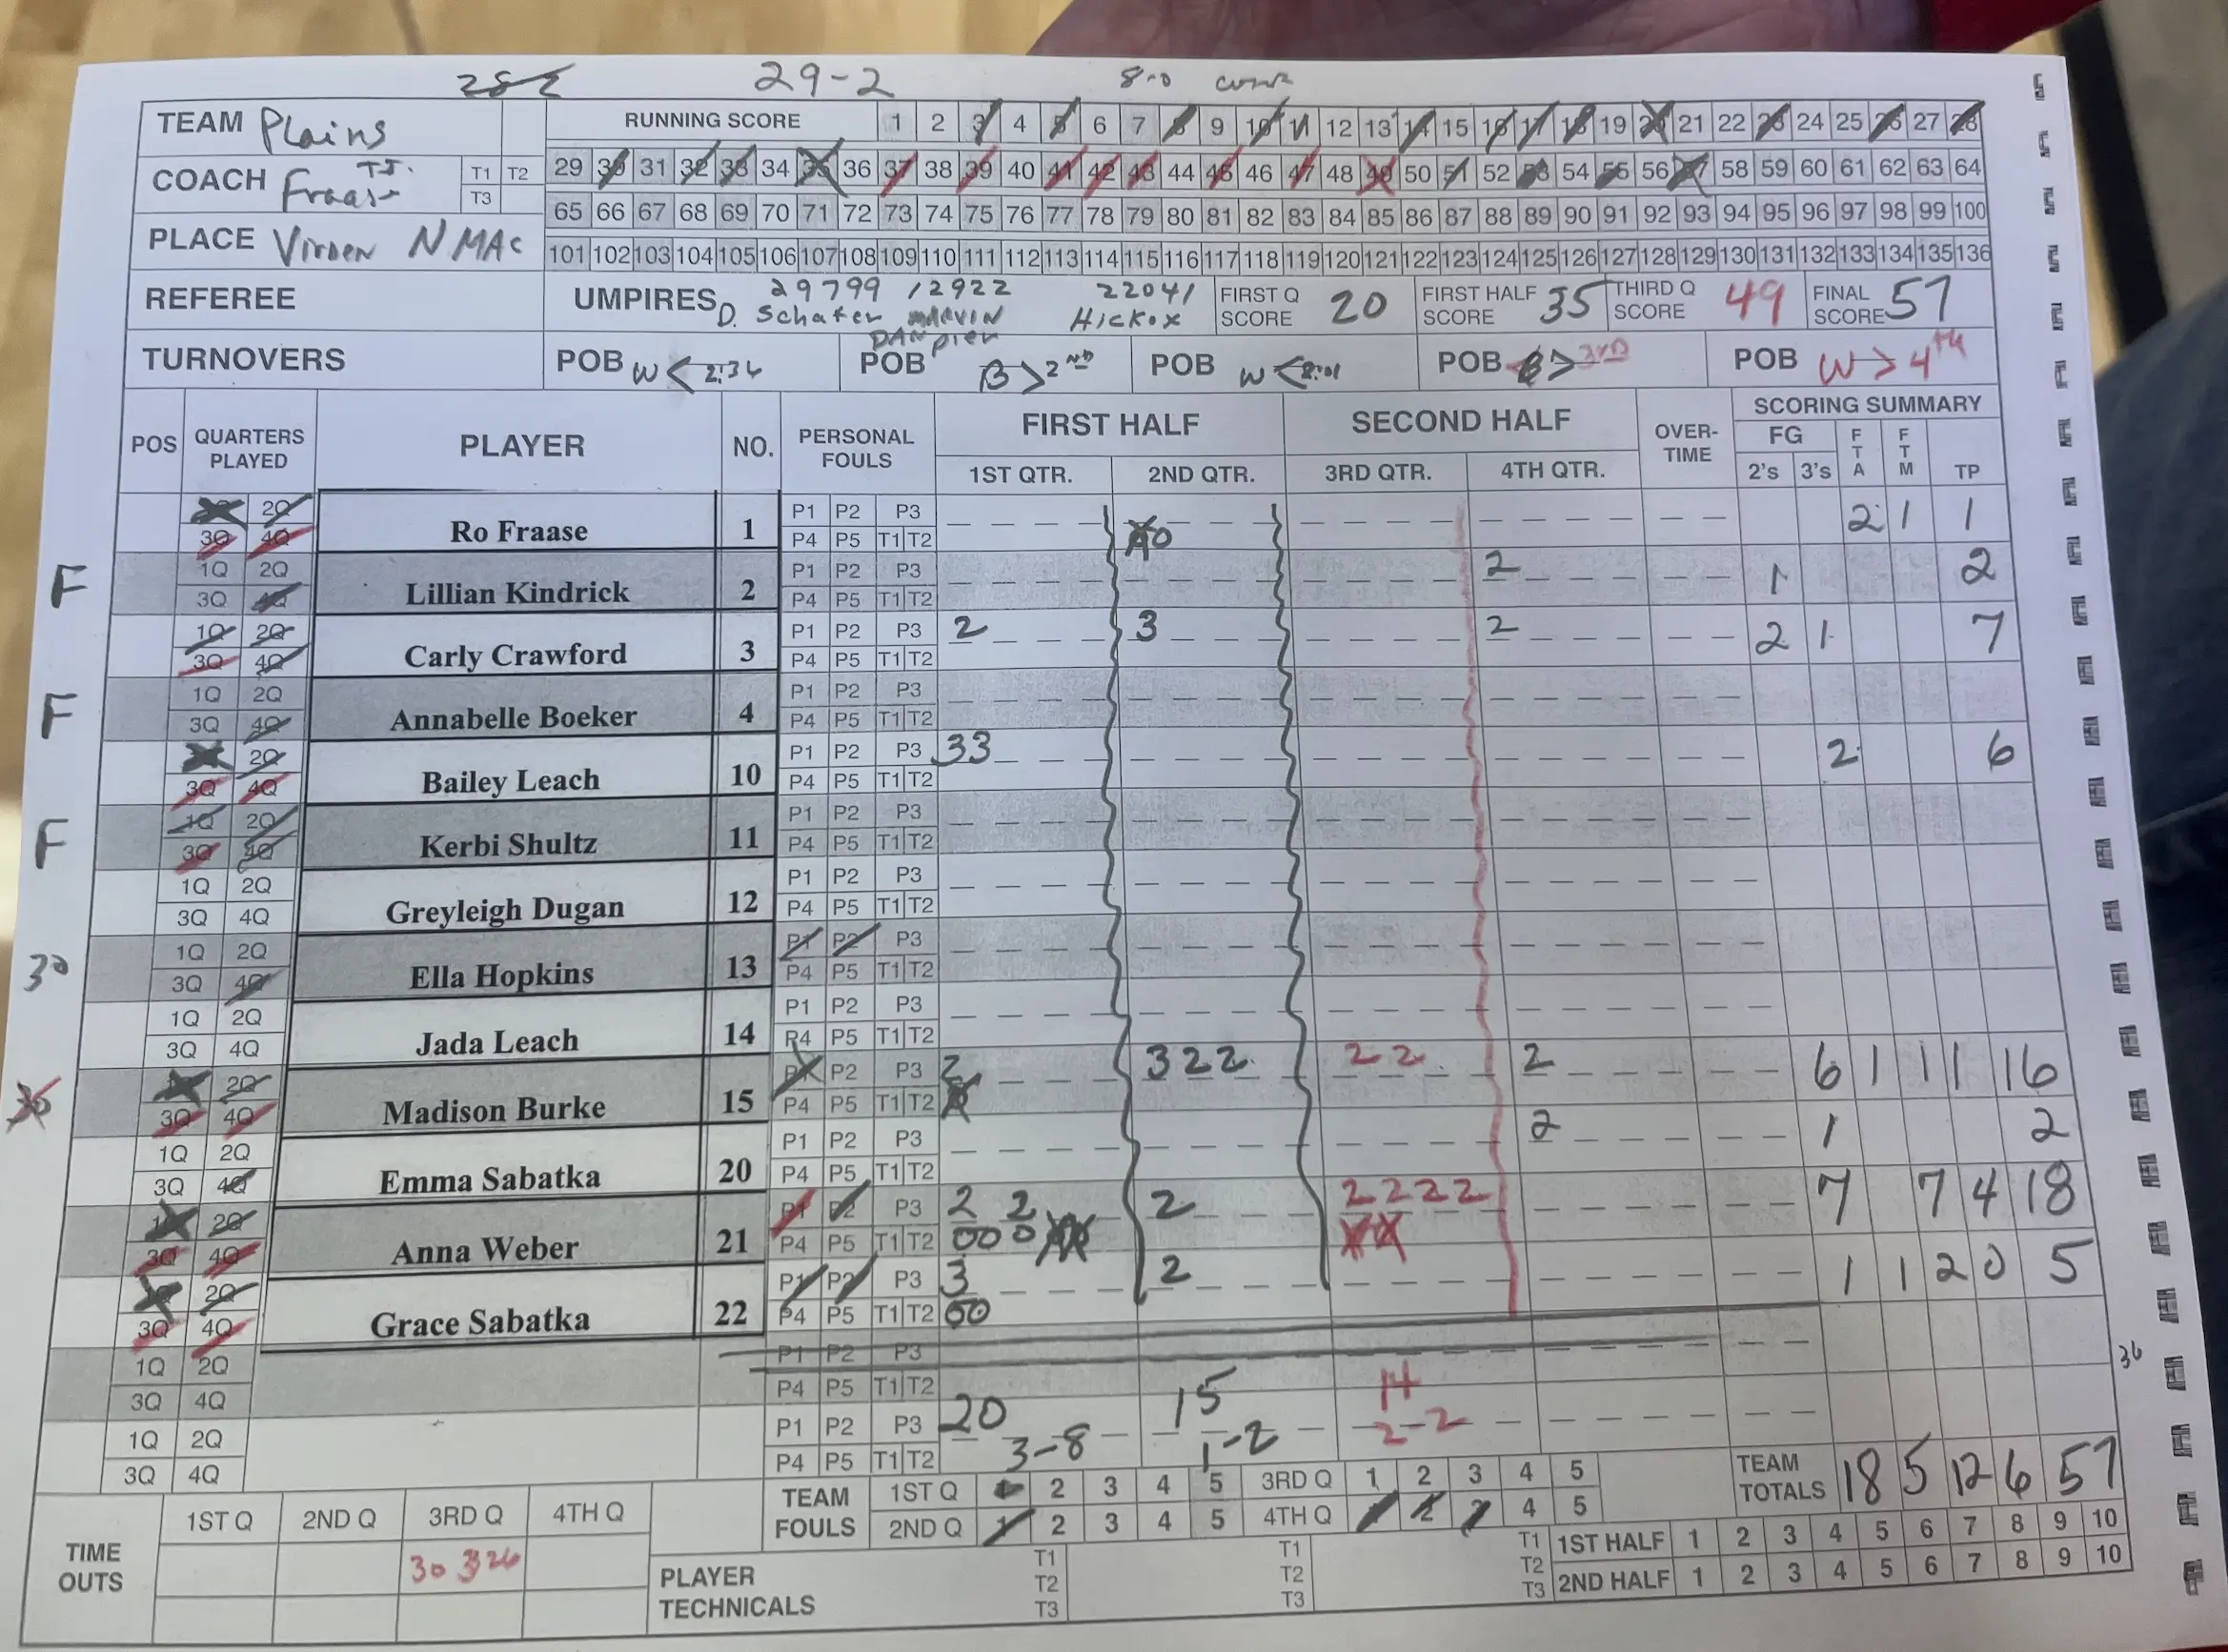 28-2 29-2 8-0 conf
TEAM Plains RUNNING SCORE 1 2 3 4 5 6 7 8 9 10 11 12 13 14 15 16 17 18 19 20 21 22 23 24 25 26 27 28
COACH T.J. Fraase T1 T2 T3 29 30 31 32 33 34 35 36 37 38 39 40 41 42 43 44 45 46 47 48 49 50 51 52 53 54 55 56 57 58 59 60 61 62 63 64
65 66 67 68 69 70 71 72 73 74 75 76 77 78 79 80 81 82 83 84 85 86 87 88 89 90 91 92 93 94 95 96 97 98 99 100
PLACE Virden N MAC 101 102 103 104 105 106 107 108 109 110 111 112 113 114 115 116 117 118 119 120 121 122 123 124 125 126 127 128 129 130 131 132 133 134 135 136
REFEREE UMPIRES 29799 12922 22041 FIRST Q SCORE 20 FIRST HALF SCORE 35 THIRD Q SCORE 49 FINAL SCORE 57
D. Schafer MARVIN Hickox
DAMPIER
TURNOVERS POB W < 2:36 POB B > 2ND POB W < 8:01 POB B > 3RD POB W > 4th
POS QUARTERS PLAYED PLAYER NO. PERSONAL FOULS FIRST HALF SECOND HALF OVER-TIME SCORING SUMMARY
FG FTA FTM TP
1ST QTR. 2ND QTR. 3RD QTR. 4TH QTR. 2's 3's
1Q 2Q P1 P2 P3 2 1 1
3Q 4Q Ro Fraase 1 P4 P5 T1 T2 0
F 1Q 2Q P1 P2 P3 2 1 2
3Q 4Q Lillian Kindrick 2 P4 P5 T1 T2
1Q 2Q P1 P2 P3 2 3 2 2 1 7
3Q 4Q Carly Crawford 3 P4 P5 T1 T2
F 1Q 2Q P1 P2 P3
3Q 4Q Annabelle Boeker 4 P4 P5 T1 T2
1Q 2Q P1 P2 P3 33 2 6
3Q 4Q Bailey Leach 10 P4 P5 T1 T2
F 1Q 2Q P1 P2 P3
3Q 4Q Kerbi Shultz 11 P4 P5 T1 T2
1Q 2Q P1 P2 P3
3Q 4Q Greyleigh Dugan 12 P4 P5 T1 T2
30 1Q 2Q P1 P2 P3
3Q 4Q Ella Hopkins 13 P4 P5 T1 T2
1Q 2Q P1 P2 P3
3Q 4Q Jada Leach 14 P4 P5 T1 T2
30 1Q 2Q P1 P2 P3 2 3 2 2 2 2 2 6 1 1 1 16
3Q 4Q Madison Burke 15 P4 P5 T1 T2
1Q 2Q P1 P2 P3 2 1 2
3Q 4Q Emma Sabatka 20 P4 P5 T1 T2
1Q 2Q P1 P2 P3 2 2 2 2 2 2 2 7 7 4 18
3Q 4Q Anna Weber 21 P4 P5 T1 T2 00 0
1Q 2Q P1 P2 P3 3 2 1 1 2 0 5
3Q 4Q Grace Sabatka 22 P4 P5 T1 T2 00
1Q 2Q P1 P2 P3 36
3Q 4Q P4 P5 T1 T2
1Q 2Q P1 P2 P3 20 15 14
3Q 4Q P4 P5 T1 T2 3-8 1-2 2-2
TEAM TOTALS 18 5 12 6 57
TIME OUTS 1ST Q 2ND Q 3RD Q 4TH Q TEAM FOULS 1ST Q 1 2 3 4 5 3RD Q 1 2 3 4 5
2ND Q 1 2 3 4 5 4TH Q 1 2 3 4 5
30 326
PLAYER TECHNICALS T1 T2 T3 T1 T2 T3 T1 T2 T3
1ST HALF 1 2 3 4 5 6 7 8 9 10
2ND HALF 1 2 3 4 5 6 7 8 9 10